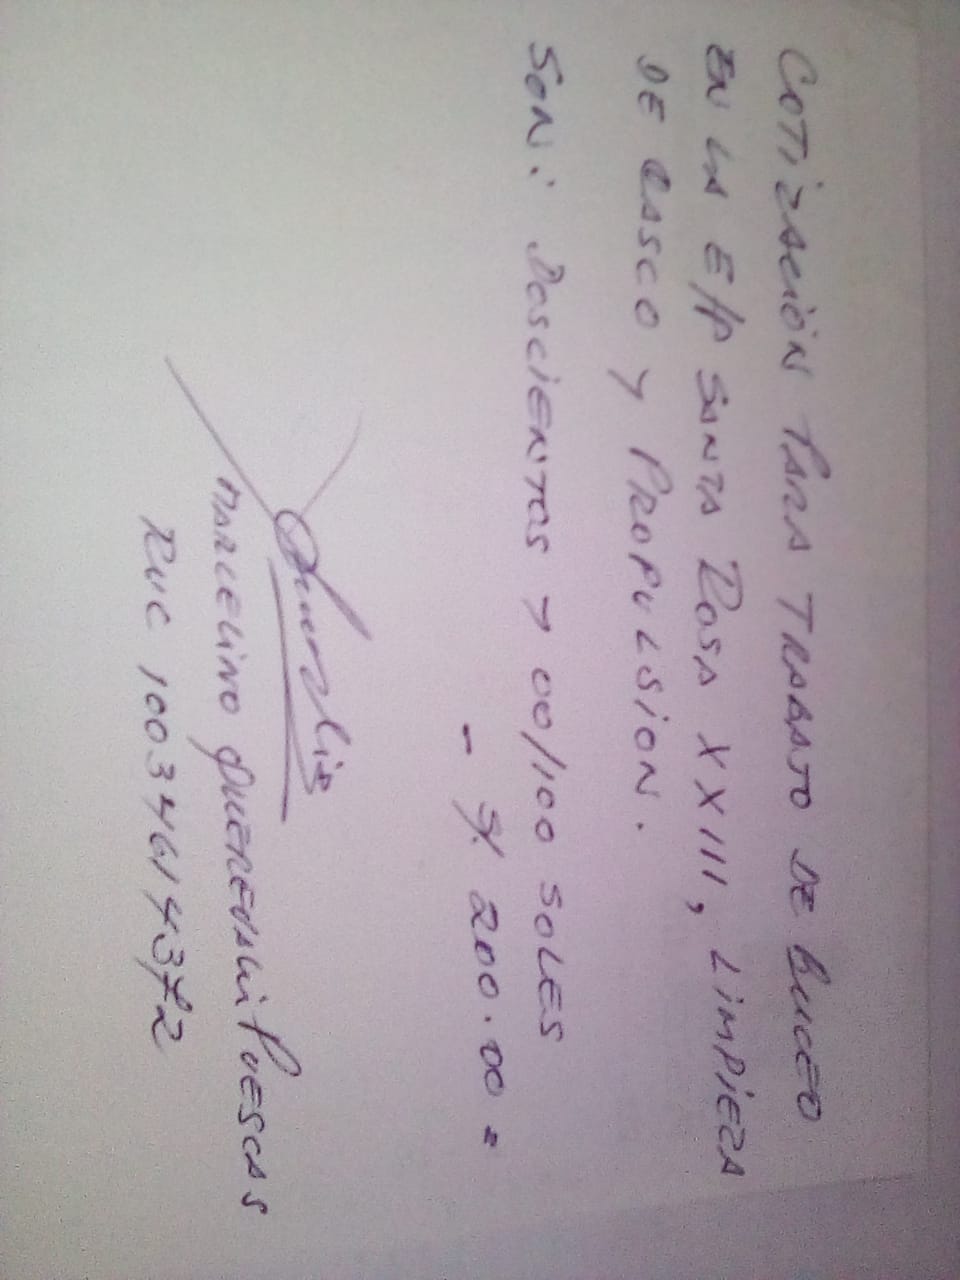 COTIZACIÓN PARA TRABAJO DE BUCEO
EN LA E/P SANTA ROSA XXIII, LIMPIEZA
DE CASCO Y PROPULSION.
SON: DOSCIENTOS Y 00/100 SOLES
- S/. 200.00=
MARCELINO QUEREVALÚ PUESCAS
RUC 10034614372